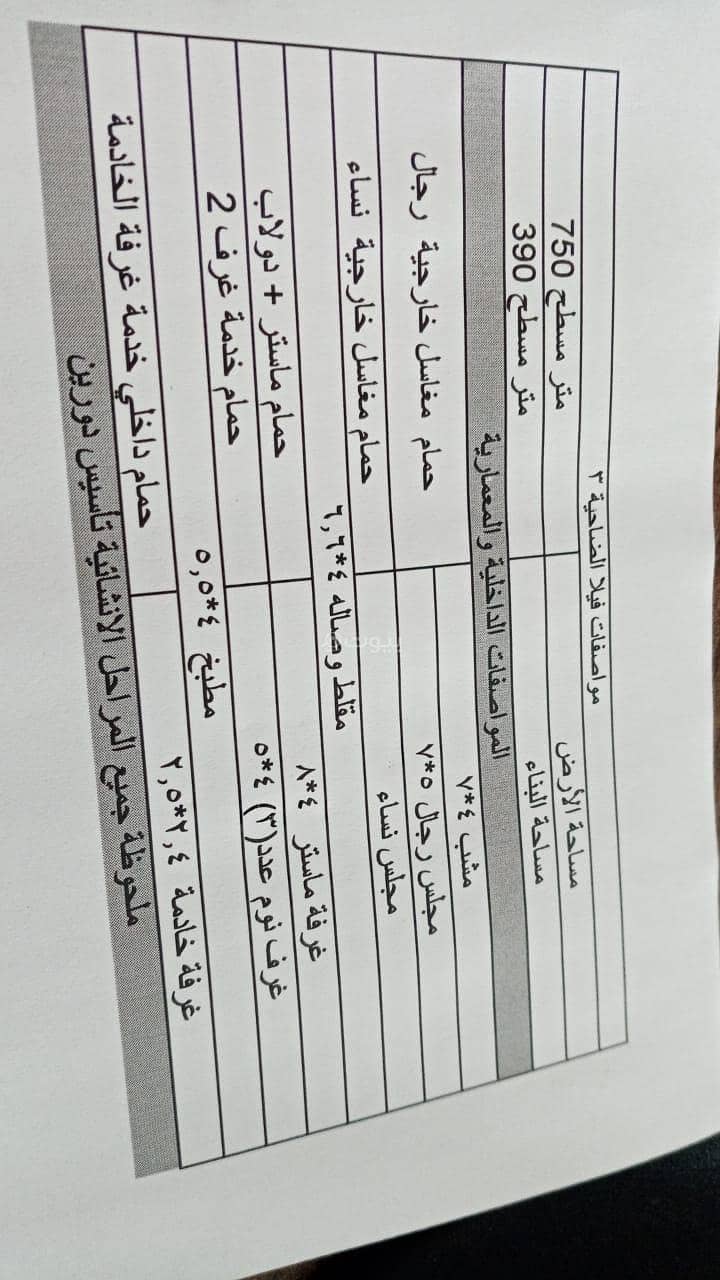 مواصفات فيلا الضاحية ٣
مساحة الأرض 750 متر مسطح
مساحة البناء 390 متر مسطح
المواصفات الداخلية والمعمارية
مشب ٤*٧
مجلس رجال ٥*٧ حمام مغاسل خارجية رجال
مجلس نساء حمام مغاسل خارجية نساء
مقلط وصاله ٤*٦,٦
غرفة ماستر ٤*٨ حمام ماستر + دولاب
غرف نوم عدد(٣) ٤*٥ حمام خدمة غرف 2
مطبخ ٤*٥,٥
غرفة خادمة ٢,٤*٢,٥ حمام داخلي خدمة غرفة الخادمة
ملحوظة جميع المراحل الانشائية تأسيس دورين